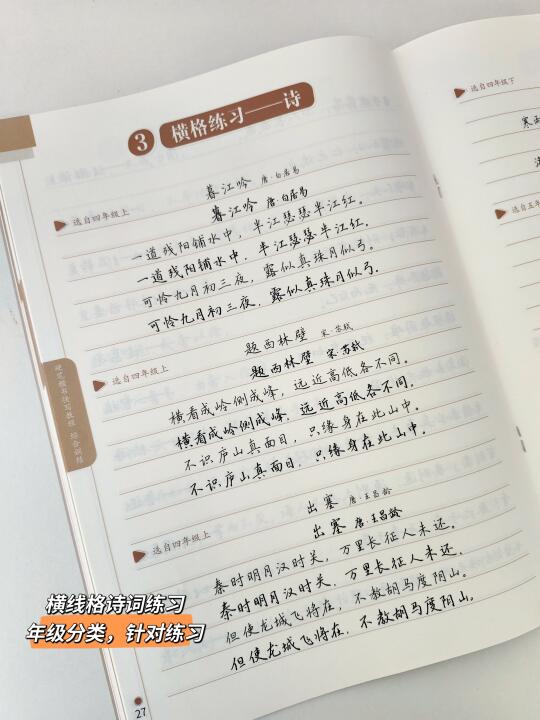 3 横格练习——诗
选自四年级上
暮江吟 唐·白居易
暮江吟 唐·白居易
一道残阳铺水中，半江瑟瑟半江红。
一道残阳铺水中，半江瑟瑟半江红。
可怜九月初三夜，露似真珠月似弓。
可怜九月初三夜，露似真珠月似弓。
选自四年级上
题西林壁 宋·苏轼
题西林壁 宋·苏轼
横看成岭侧成峰，远近高低各不同。
横看成岭侧成峰 远近高低各不同。
不识庐山真面目，只缘身在此山中。
不识庐山真面目，只缘身在此山中。
选自四年级上
出塞 唐·王昌龄
出塞 唐·王昌龄
秦时明月汉时关，万里长征人未还。
秦时明月汉时关，万里长征人未还。
但使龙城飞将在，不教胡马度阴山。
但使龙城飞将在，不教胡马度阴山。
27
综合训练
选自四年级下
寒
选自五年
横线格诗词练习
年级分类，针对练习